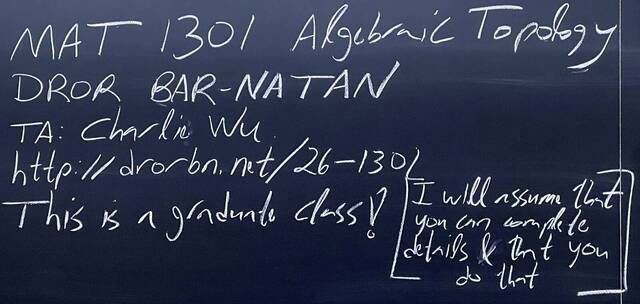 MAT 1301 Algebraic Topology
DROR BAR-NATAN
TA: Charlie Wu
http://drorbn.net/26-1301
This is a graduate class!
[I will assume that
you can complete
details & that you
do that]